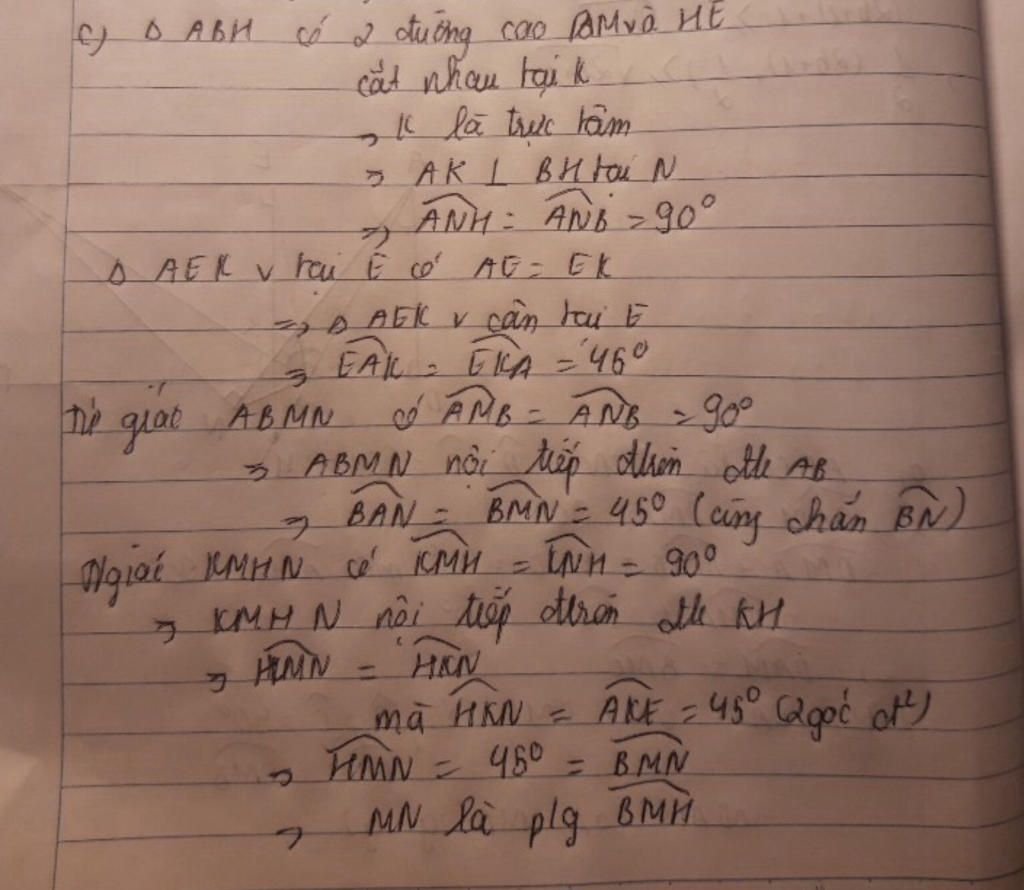 c) Δ ABH có 2 đường cao BM và HE
cắt nhau tại K
⇒ K là trực tâm
⇒ AK ⊥ BH tại N
⇒ \widehat{ANH} = \widehat{ANB} = 90°
Δ AEK v tại E có AE = EK
⇒ Δ AEK v cân tại E
⇒ \widehat{EAK} = \widehat{EKA} = 45°
Tứ giác ABMN có \widehat{AMB} = \widehat{ANB} = 90°
⇒ ABMN nội tiếp đtròn đk AB
⇒ \widehat{BAN} = \widehat{BMN} = 45° (cùng chắn \widehat{BN})
giác KMHN có \widehat{KMH} = \widehat{KNH} = 90°
⇒ KMHN nội tiếp đtròn đk KH
⇒ \widehat{HMN} = \widehat{HKN}
mà \widehat{HKN} = \widehat{AKE} = 45° (2 góc đ²)
⇒ \widehat{HMN} = 45° = \widehat{BMN}
⇒ MN là p/g \widehat{BMH}